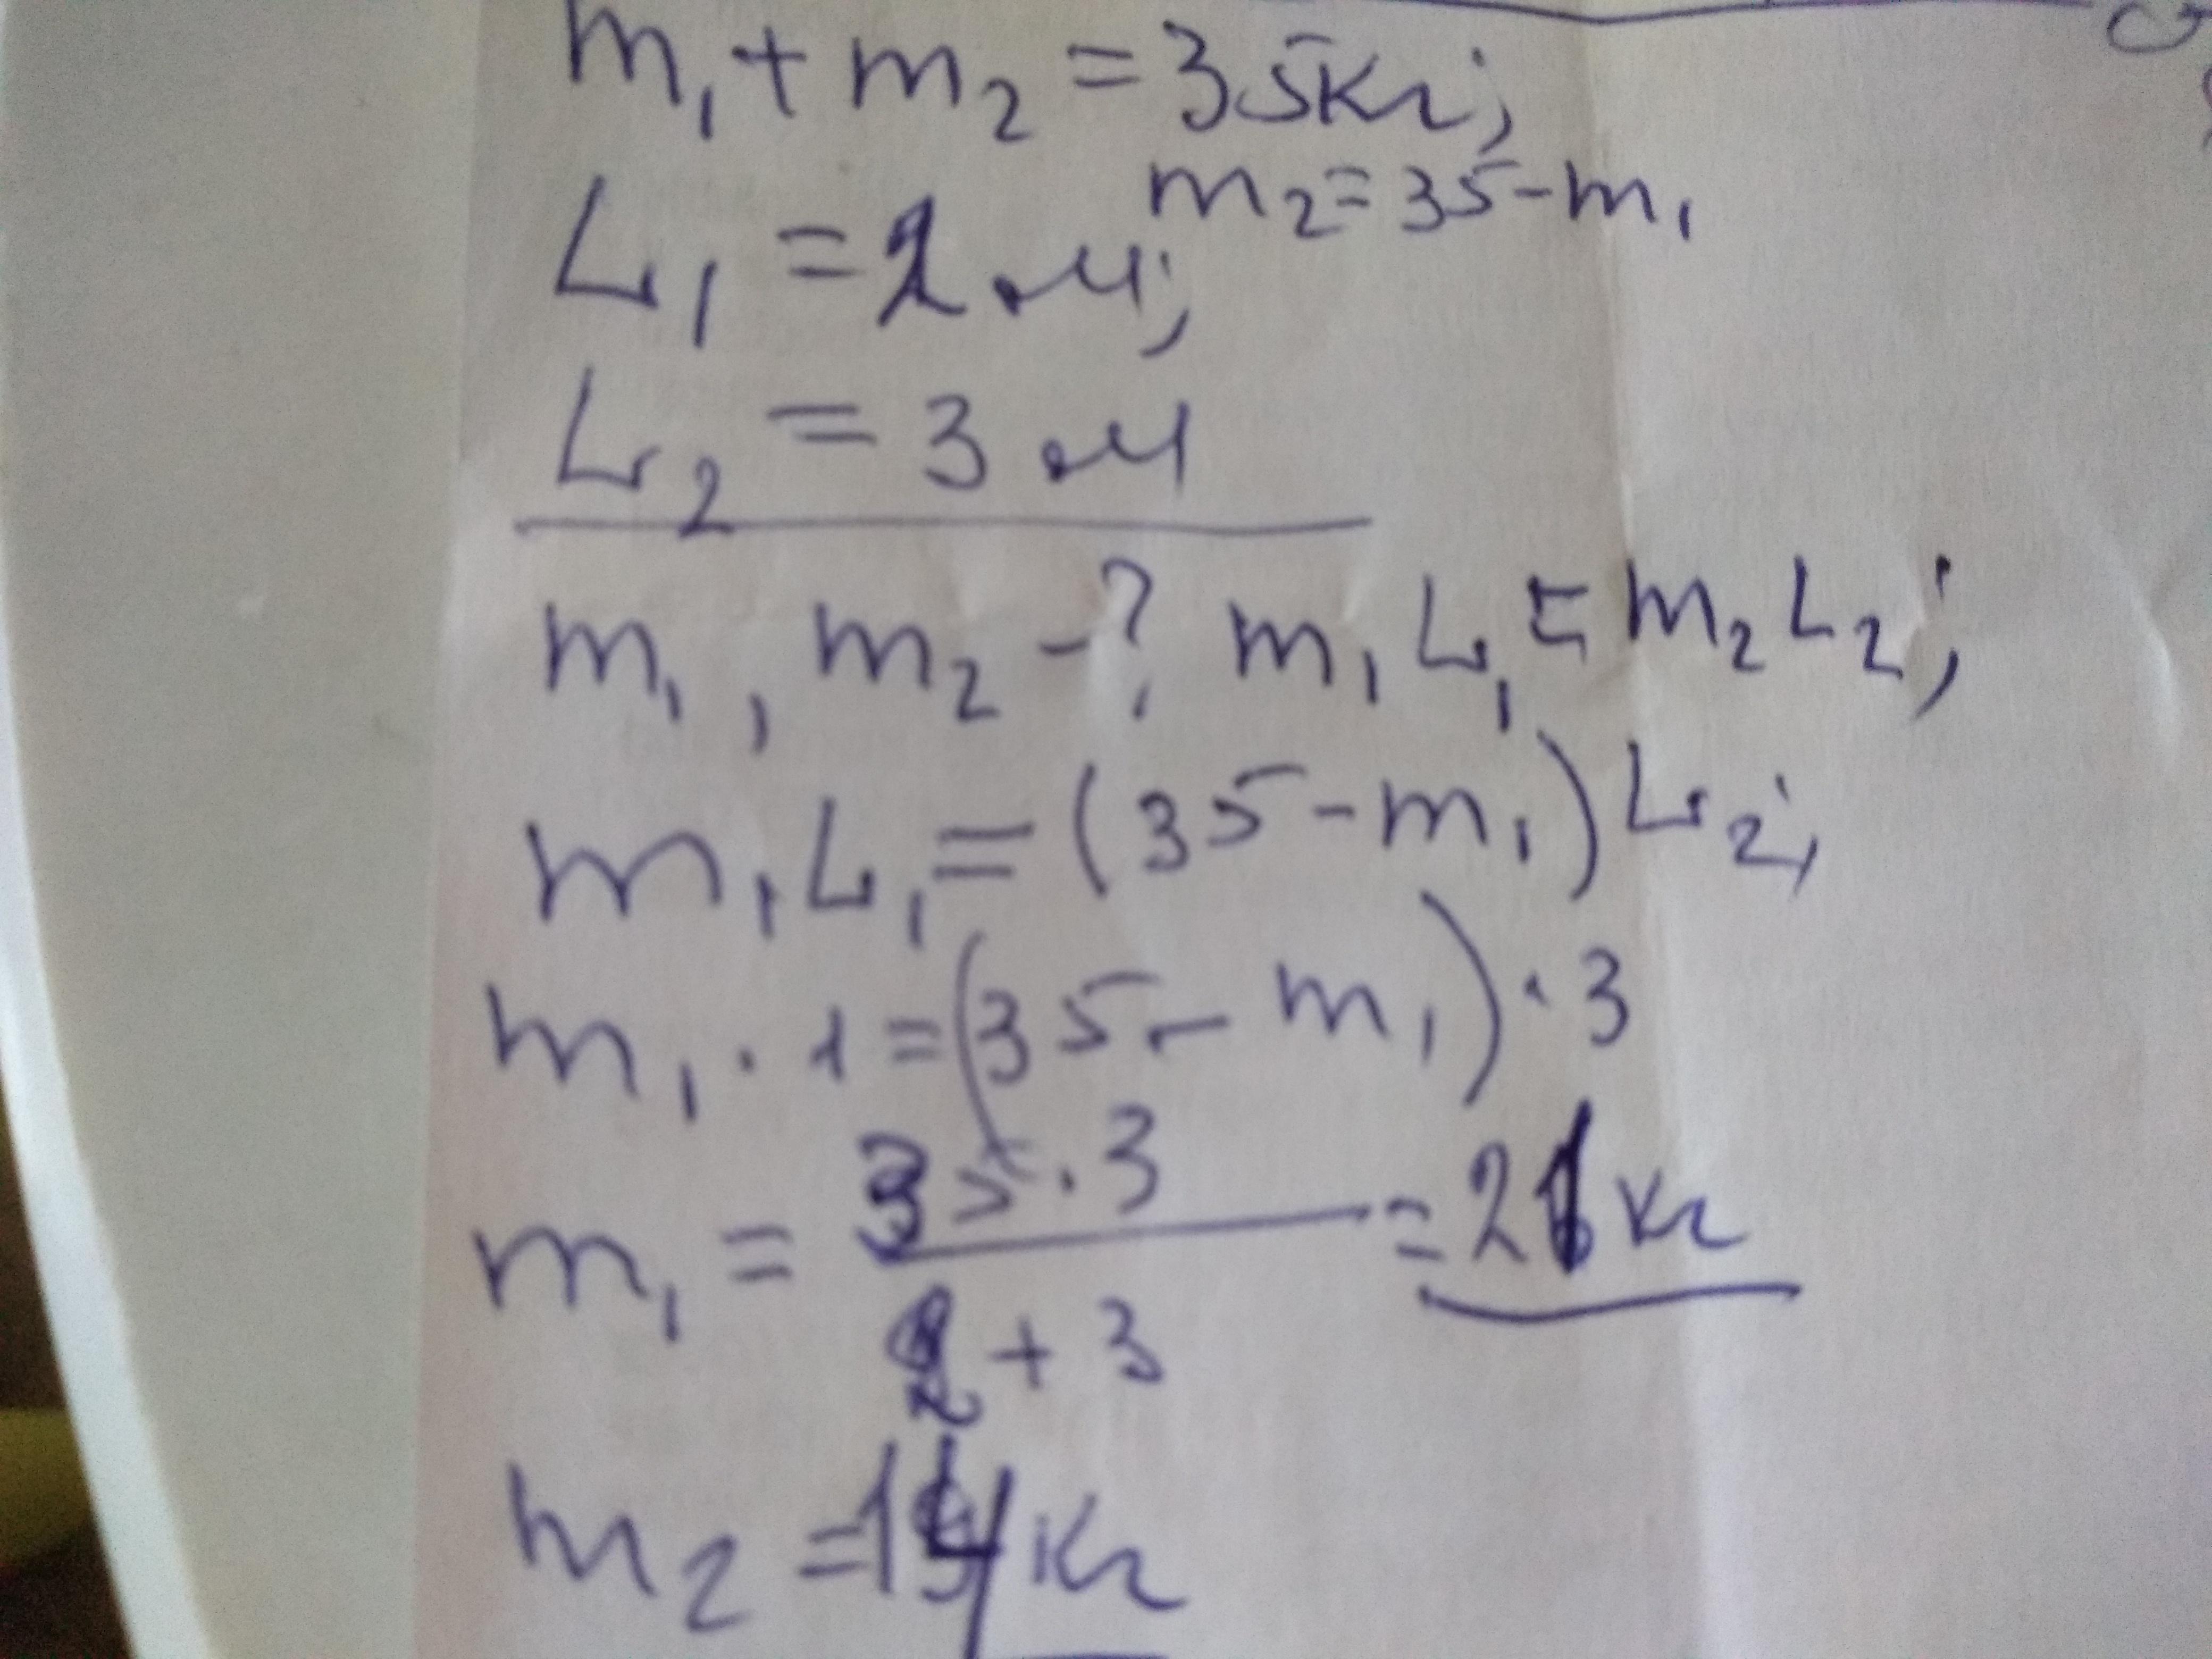 m₁ + m₂ = 35кг;
m₂ = 35 - m₁
L₁ = 2 м;
L₂ = 3 м
m₁, m₂ - ? m₁L₁ = m₂L₂;
m₁L₁ = (35 - m₁)L₂;
m₁ · 1 = (35 - m₁) · 3
m₁ = 35 · 3 / 2 + 3 = 21 кг
m₂ = 14 кг